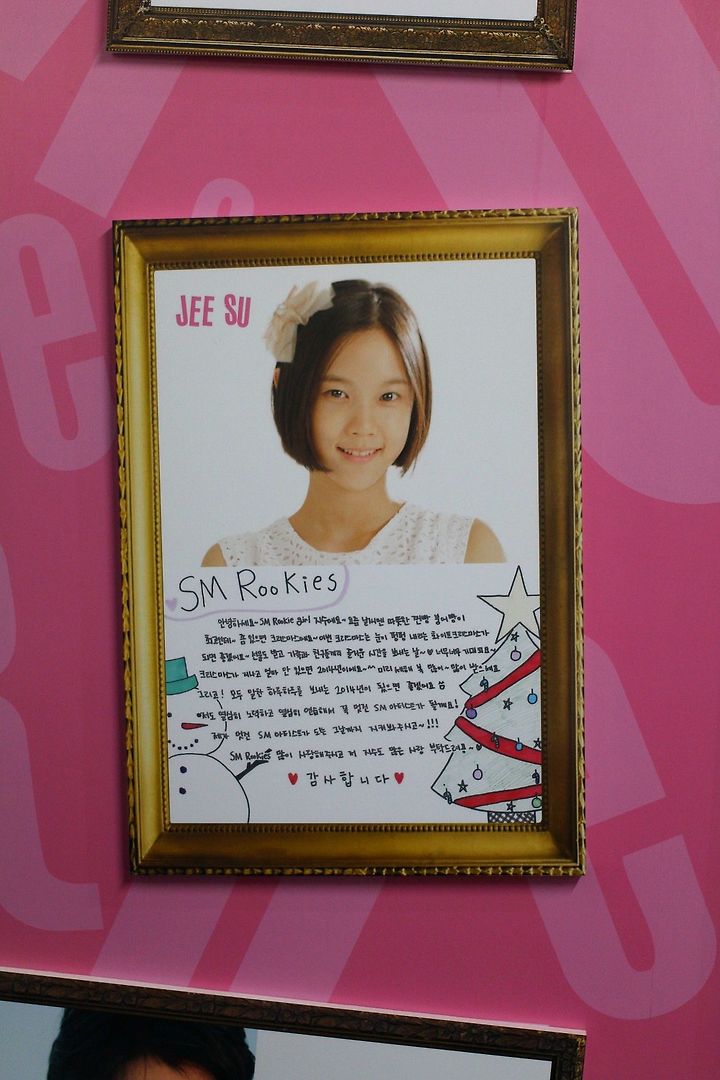 JEE SU
SM RooKies
안녕하세요~ SM Rookie girl 지수에요~ 요즘 날씨엔 따뜻한 찐빵 붕어빵이
최고인데~ 좀 있으면 크리스마스에요~ 이번 크리스마스는 눈이 펑펑 내리는 화이트크리스마스가
되면 좋겠어요~ 선물도 받고 가족과 친구들에게 즐거운 시간을 보내는 날~ ♥ 너무너무 기대되요~
크리스마스가 지나고 얼마 안 있으면 2014년이에요~^^ 미리 새해 복 많이~ 많이 받으세요
그리고! 모두 알찬 하루하루를 보내는 2014년이 됬으면 좋겠어요
저도 열심히 노력하고 열심히 연습해서 꼭 멋진 SM 아티스트가 될게요!
제가 멋진 SM 아티스트가 되는 그날까지 지켜봐주시고~!!!
SM Rookies 많이 사랑해주시고 저 지수도 많은 사랑 부탁드려용~♥
♥ 감사합니다 ♥